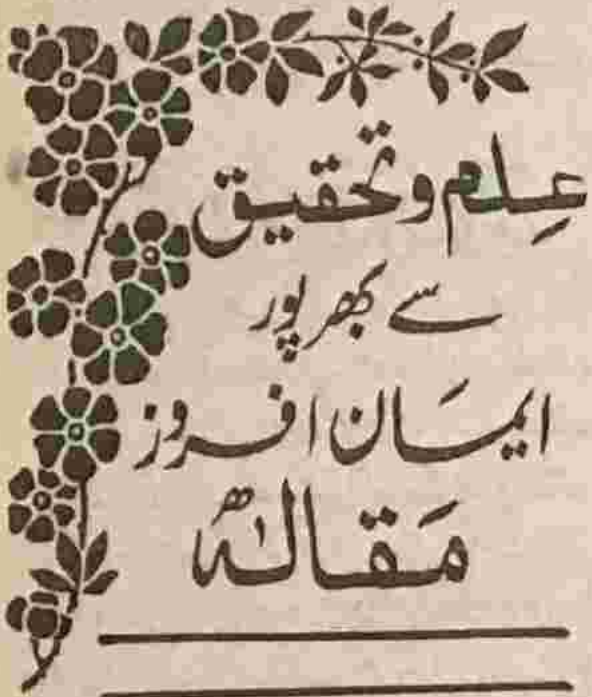 علم و تحقیق
سے بھرپور
ایمان افروز
مقالہ